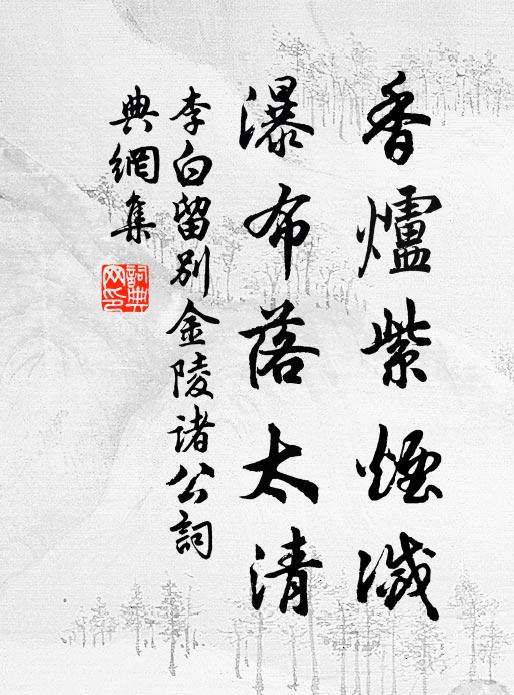 香爐紫煙滅
瀑布落太清
李白留別金陵诸公詞
典網集
詞典
网印